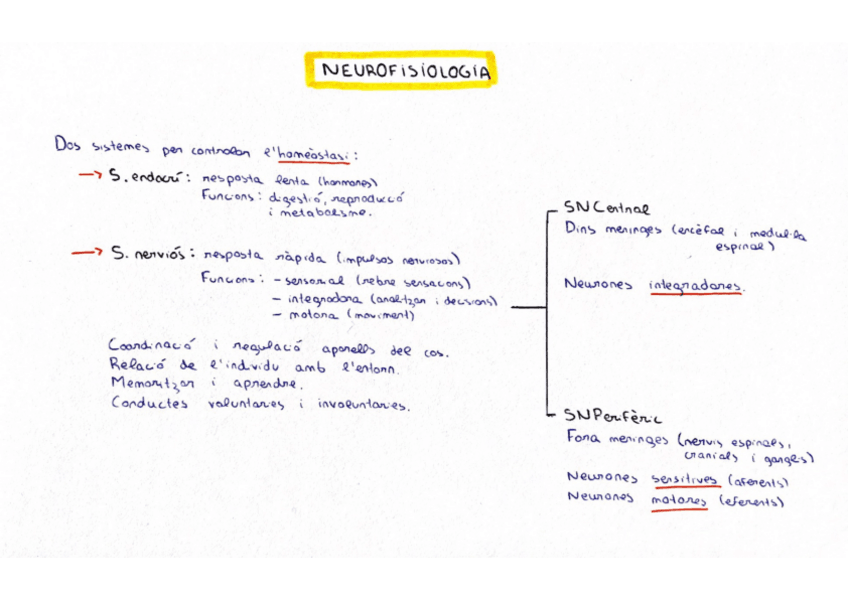 NEUROFISIOLOGIA
Dos sistemes per controlar l'homeòstasi:
→ S. endocrí: resposta lenta (hormones)
Funcions: digestió, reproducció
i metabolisme.
→ S. nerviós: resposta ràpida (impulsos nerviosos)
Funcions: - sensorial (rebre sensacions)
- integradora (analitzar i decisions)
- motora (moviment)
Coordinació i regulació aparells del cos.
Relació de l'individu amb l'entorn.
Memoritzar i aprendre.
Conductes voluntaries i involuntaries.
SNCentral
Dins meninges (encèfal i medul·la
espinal)
Neurones integradores.
SNPerifèric
Fora meninges (nervis espinals,
cranials i ganglis)
Neurones sensitives (aferents)
Neurones motores (eferents)